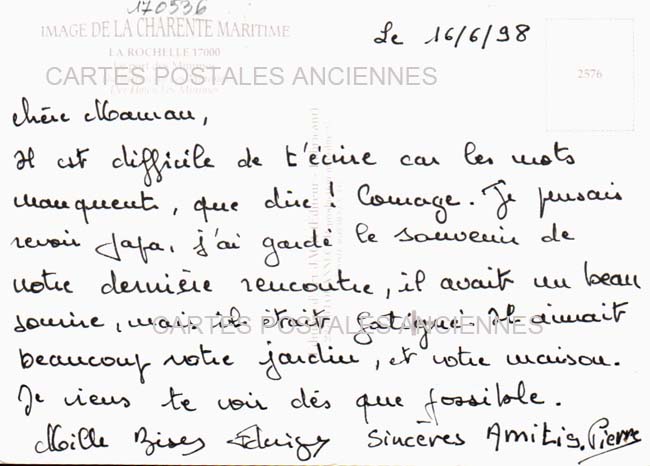 170536
IMAGE DE LA CHARENTE MARITIME
LA ROCHELLE 17000
Le 16/6/98
2576
CARTES POSTALES ANCIENNES
Chère Maman,
Il est difficile de t'écrire car les mots
manquent, que dire ! Courage. Je pensais
revoir papa, j'ai gardé le souvenir de
notre dernière rencontre, il avait un beau
sourire, mais il était fatigué. Il aimait
CARTES POSTALES ANCIENNES
beaucoup votre jardin, et votre maison.
Je viens te voir dès que possible.
Mille Bises Sincères Amitiés. Pierre